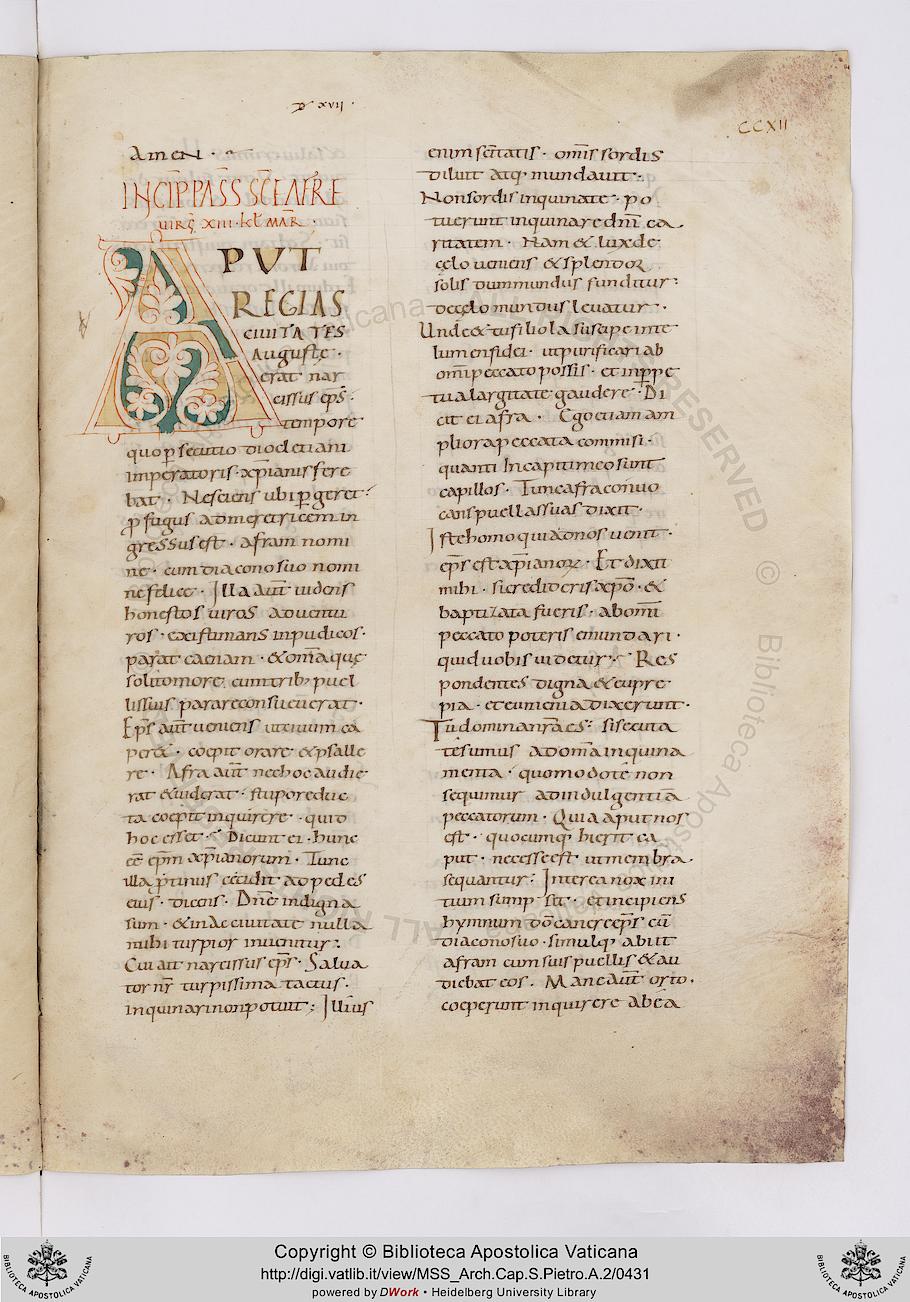 xvii ·
CCXII
Amen ·
INCIP PASS SCE AFRE
UIRG XIII · KL MAR ·
APUT
REGIAS
CIUITATES
Auguste ·
erat nar
cissus eps ·
tempore
quo persecutio diocletiani
imperatoris · xpianis fere
bat · Nesciens ubi pergeret ·
profugus ad meretricem in
gressus est · afram nomi
ne · cum diacono suo nomi
ne felice · Illa aut uidens
honestos uiros aduentu
ros · existimans inpudicos ·
parat caenam · & omia que
solito more cum trib; puel
lis suis parare consueuerat ·
Eps aut ueniens ut cibum ca
per& · coepit orare & psalle
re · Afra aut nec hoc audie
rat & uiderat · stupore duc
ta coepit inquirere · quid
hoc esset · Dicunt ei · hunc
ee epm xpianorum · Tunc
illa protinus cecidit ad pedes
eius · dicens · Dne indigna
sum · & in ac ciuitate nulla
mihi turpior inuenitur ·
Cui ait narcissus eps · Salua
tor nr turpissima tactus ·
inquinari non potuit : Illius
enim scitatis · omis sordis
diluit atq; mundauit ·
Non sordis inquinate · po
tuerunt inquinare dni ca
ritatem · Nam & lux de
celo ueniens & splendor
solis dum mundus funditur ·
de celo mundus leuatur ·
Unde & tu filiola suscipe inte
lumen fidei · ut purificari ab
omi peccato possis · et in perpe
tua largitate gaudere · Di
cit ei afra · Ego etiam am
pliora peccata commisi ·
quanti In capiti meo sunt
capillos · Tunc afra conuo
cans puellas suas dixit ·
Iste homo qui ad nos uenit ·
eps est xpianor · Et dixit
mihi · si credideris xpo · &
baptizata fueris · ab omi
peccato poteris emundari ·
quid uobis uidetur · Res
pondentes digna & eupre
pia · et eumenia dixerunt ·
Tu domina nra es · si secuta
te sumus ad omia inquina
menta · quomodo te non
sequimur ad indulgentia
peccatorum · Quia aput nos
est · quocumq; hierit ca
put · necesse est ut membra
sequantur : Interea nox ini
tium sumpsit · et incipiens
hymnum do canere eps cu
diacono suo · simulq; abiit
afram cum suis puellis & au
diebat eos · Mane aut orto ·
coeperunt inquirere ab ea
Copyright © Biblioteca Apostolica Vaticana
http://digi.vatlib.it/view/MSS_Arch.Cap.S.Pietro.A.2/0431
powered by DWork · Heidelberg University Library